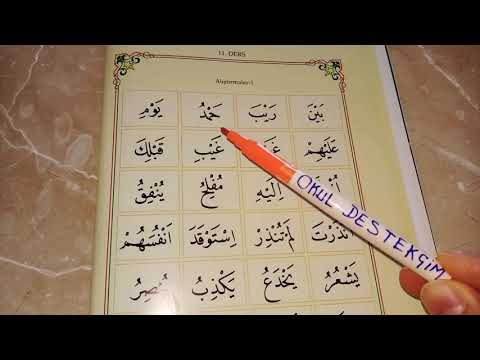 11. DERS
Alıştırmalar-1
بَيْنَ رَيْبَ حَمْدُ يَوْمِ
عَلَيْهِمْ غَيْبِ قَبْلِكَ
اِلَيْهِ مُفْلِحُ يُنْفِقُ
لَمْ تُنْذِرْ اِسْتَوْقَدَ اَنْفُسَهُمْ
يَشْعُرُ يَخْدَعُ يَكْذِبُ
OKUL DESTEKÇİM